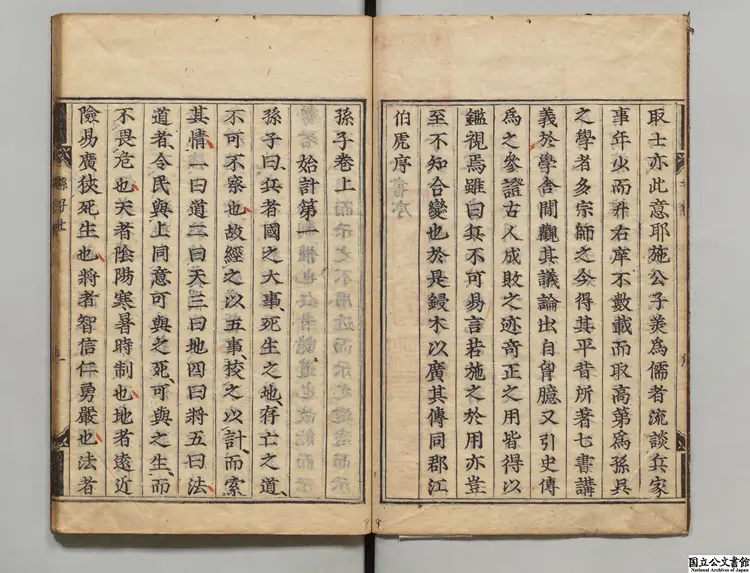 取士亦此意耶施公子美爲儒者流談兵家
事年少而升右庠不數載而取高第爲孫吳
之學者多宗師之今得其平昔所著七書講
義於學舍間觀其議論出自胷臆又引史傳
爲之參證古人成敗之迹奇正之用皆得以
鑑視焉雖曰兵不可易言若施之於用亦豈
至不知合變也於是鋟木以廣其傳同郡江
伯虎序
孫子卷上
始計第一
孫子曰兵者國之大事死生之地存亡之道
不可不察也故經之以五事校之以計而索
其情一曰道二曰天三曰地四曰將五曰法
道者令民與上同意可與之死可與之生而
不畏危也天者陰陽寒暑時制也地者遠近
險易廣狹死生也將者智信仁勇嚴也法者
孫子上
国立公文書館
National Archives of Japan